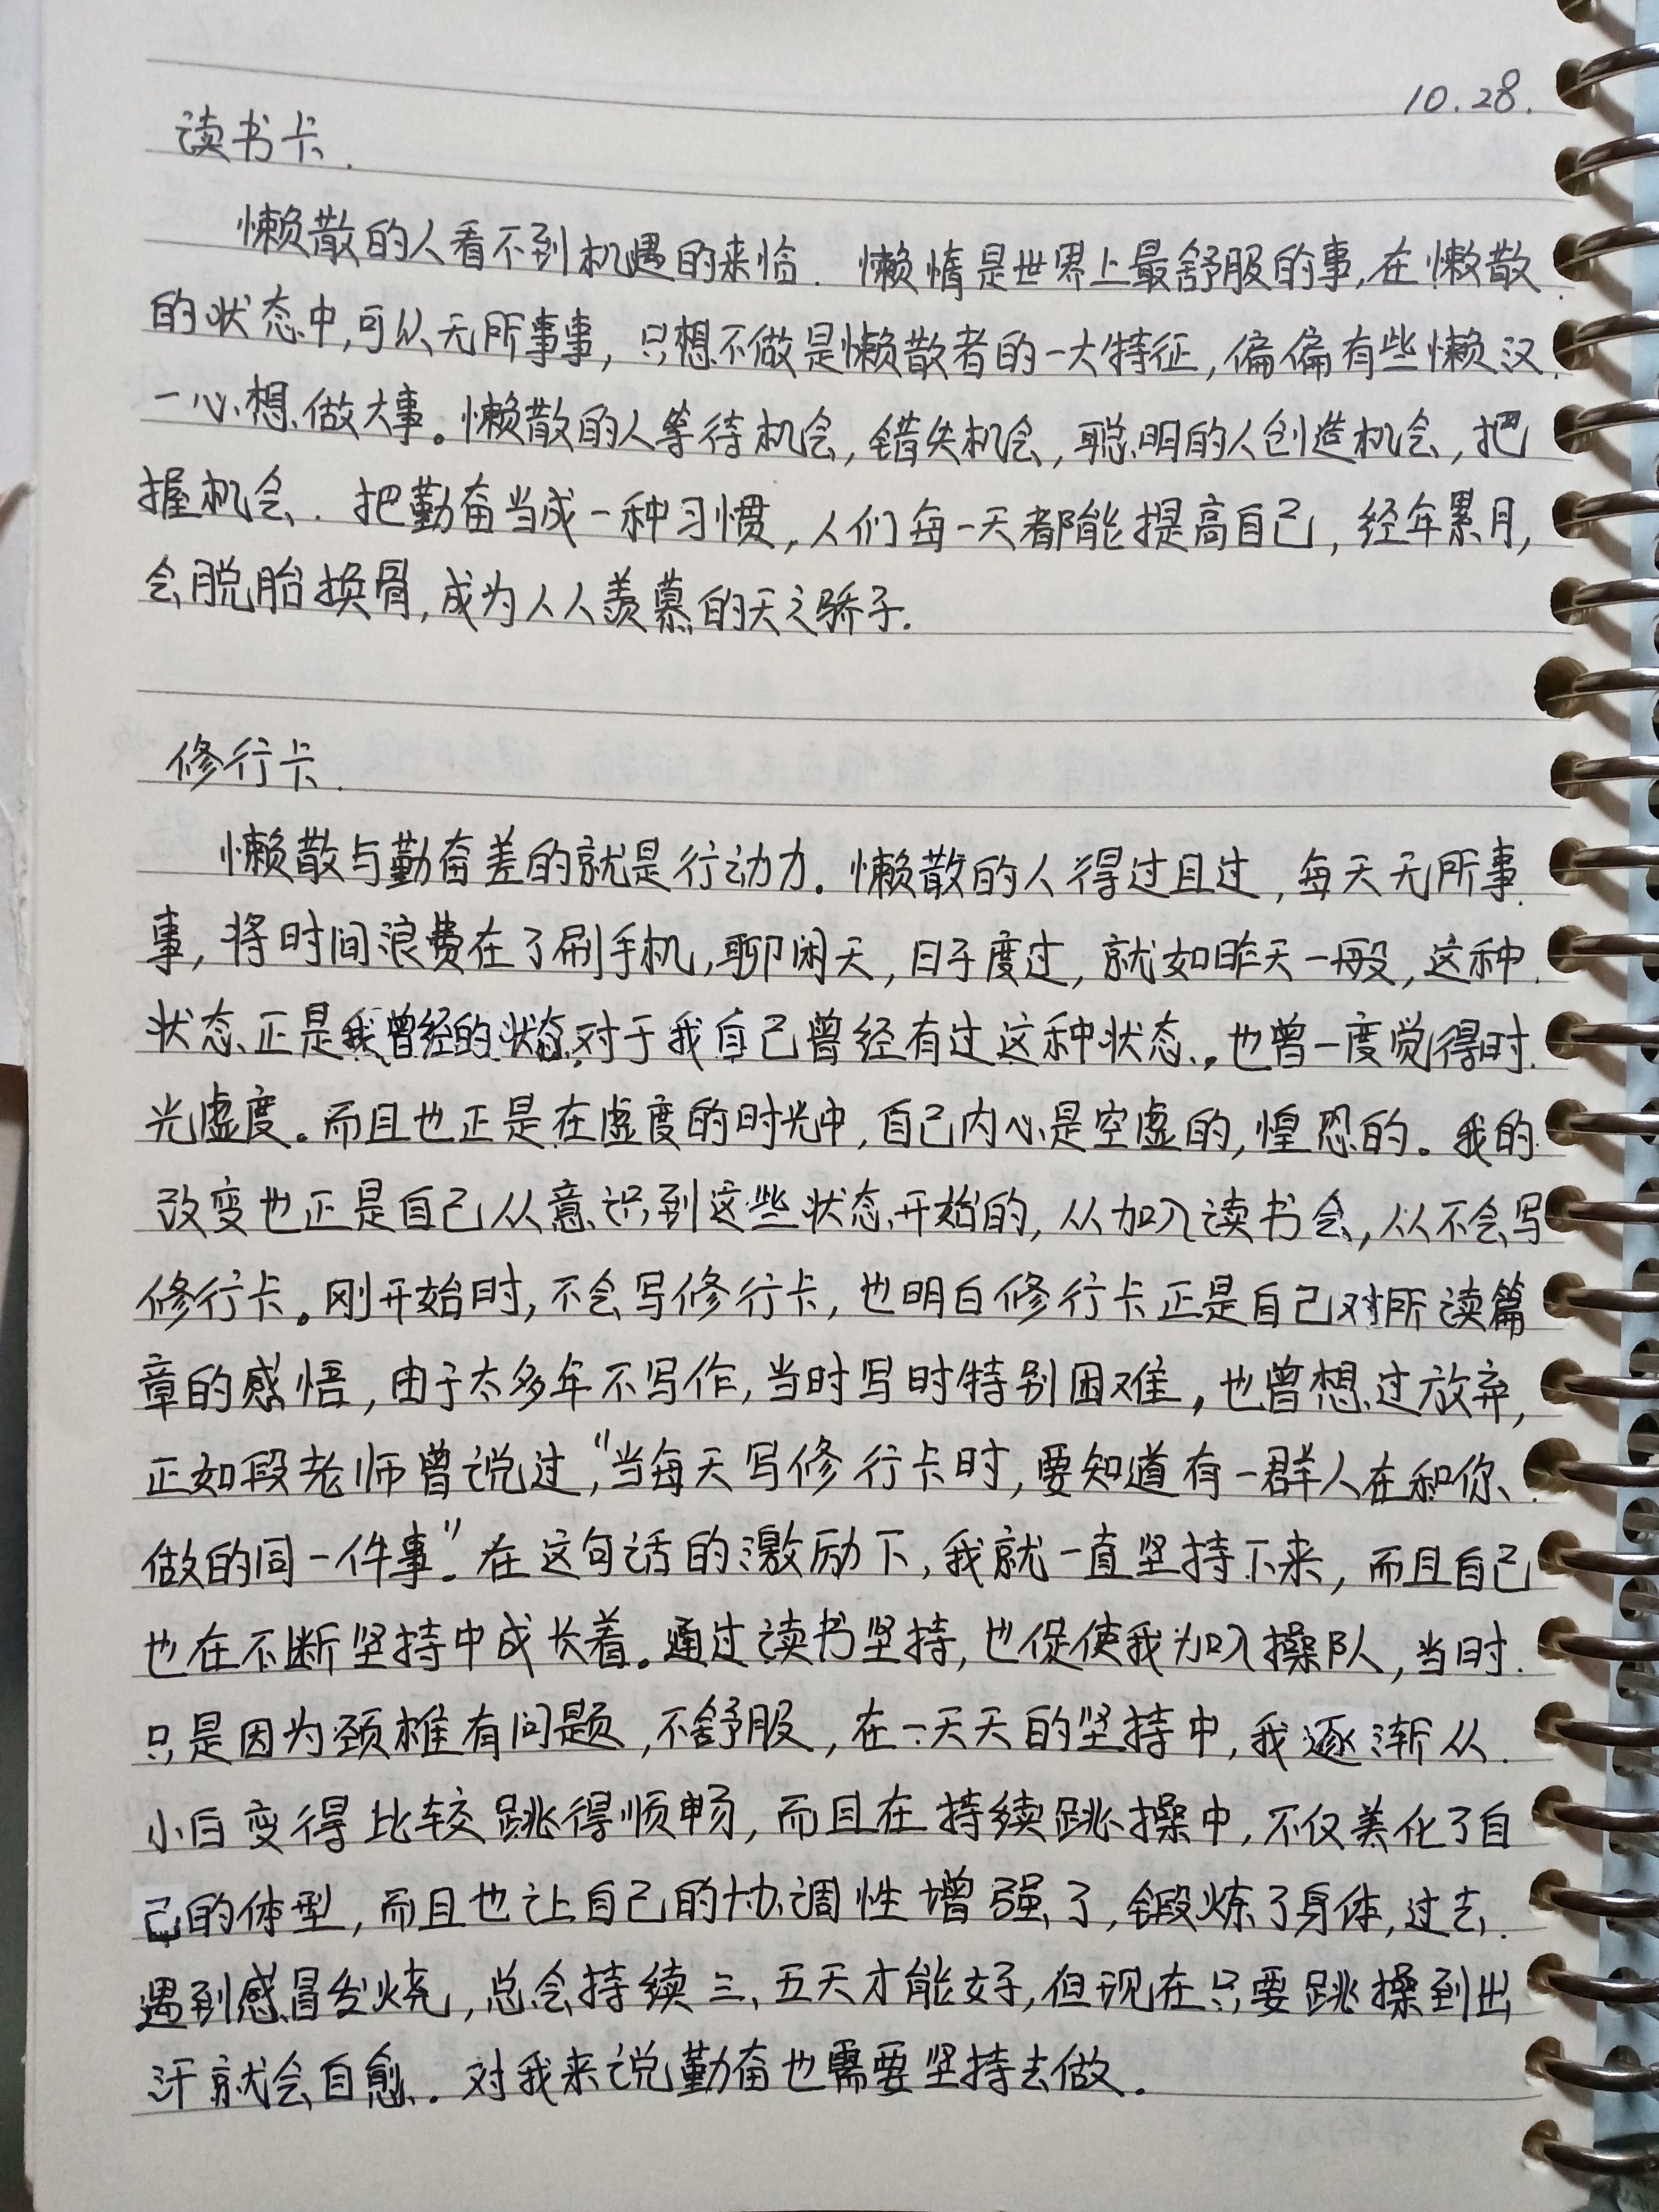 10.28.
读书卡.
懒散的人看不到机遇的来临. 懒惰是世界上最舒服的事,在懒散
的状态中,可以无所事事,只想不做是懒散者的一大特征,偏偏有些懒汉
一心想做大事。懒散的人等待机会,错失机会,聪明的人创造机会,把
握机会. 把勤奋当成一种习惯,人们每一天都能提高自己,经年累月,
会脱胎换骨,成为人人羡慕的天之骄子.
修行卡.
懒散与勤奋差的就是行动力。懒散的人得过且过,每天无所事
事,将时间浪费在了刷手机,聊闲天,日子度过,就如昨天一般,这种
状态正是我曾经的状态,对于我自己曾经有过这种状态,也曾一度觉得时
光虚度。而且也正是在虚度的时光中,自己内心是空虚的,惶恐的。我的
改变也正是自己从意识到这些状态开始的,从加入读书会,从不会写
修行卡。刚开始时,不会写修行卡,也明白修行卡正是自己对所读篇
章的感悟,由于太多年不写作,当时写时特别困难,也曾想过放弃,
正如段老师曾说过,"当每天写修行卡时,要知道有一群人在和你、
做的同一件事"。在这句话的激励下,我就一直坚持下来,而且自己
也在不断坚持中成长着。通过读书坚持,也促使我加入操队,当时
只是因为颈椎有问题,不舒服,在一天天的坚持中,我逐渐从
小白变得比较跳得顺畅,而且在持续跳操中,不仅美化了自
己的体型,而且也让自己的协调性增强了,锻炼了身体,过去
遇到感冒发烧,总会持续三、五天才能好,但现在只要跳操到出
汗就会自愈. 对我来说勤奋也需要坚持去做.